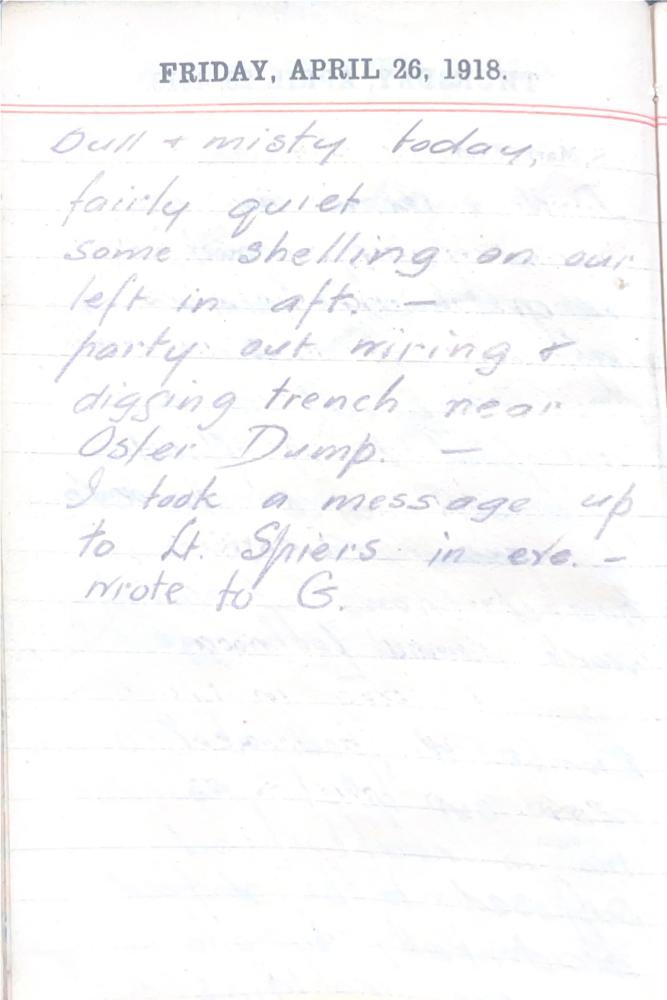 FRIDAY, APRIL 26, 1918.
Dull + misty today,
fairly quiet
some shelling on our
left in aft. —
party out wiring &
digging trench near
Osler Dump. —
I took a message up
to Lt. Spiers in eve. –
wrote to G.